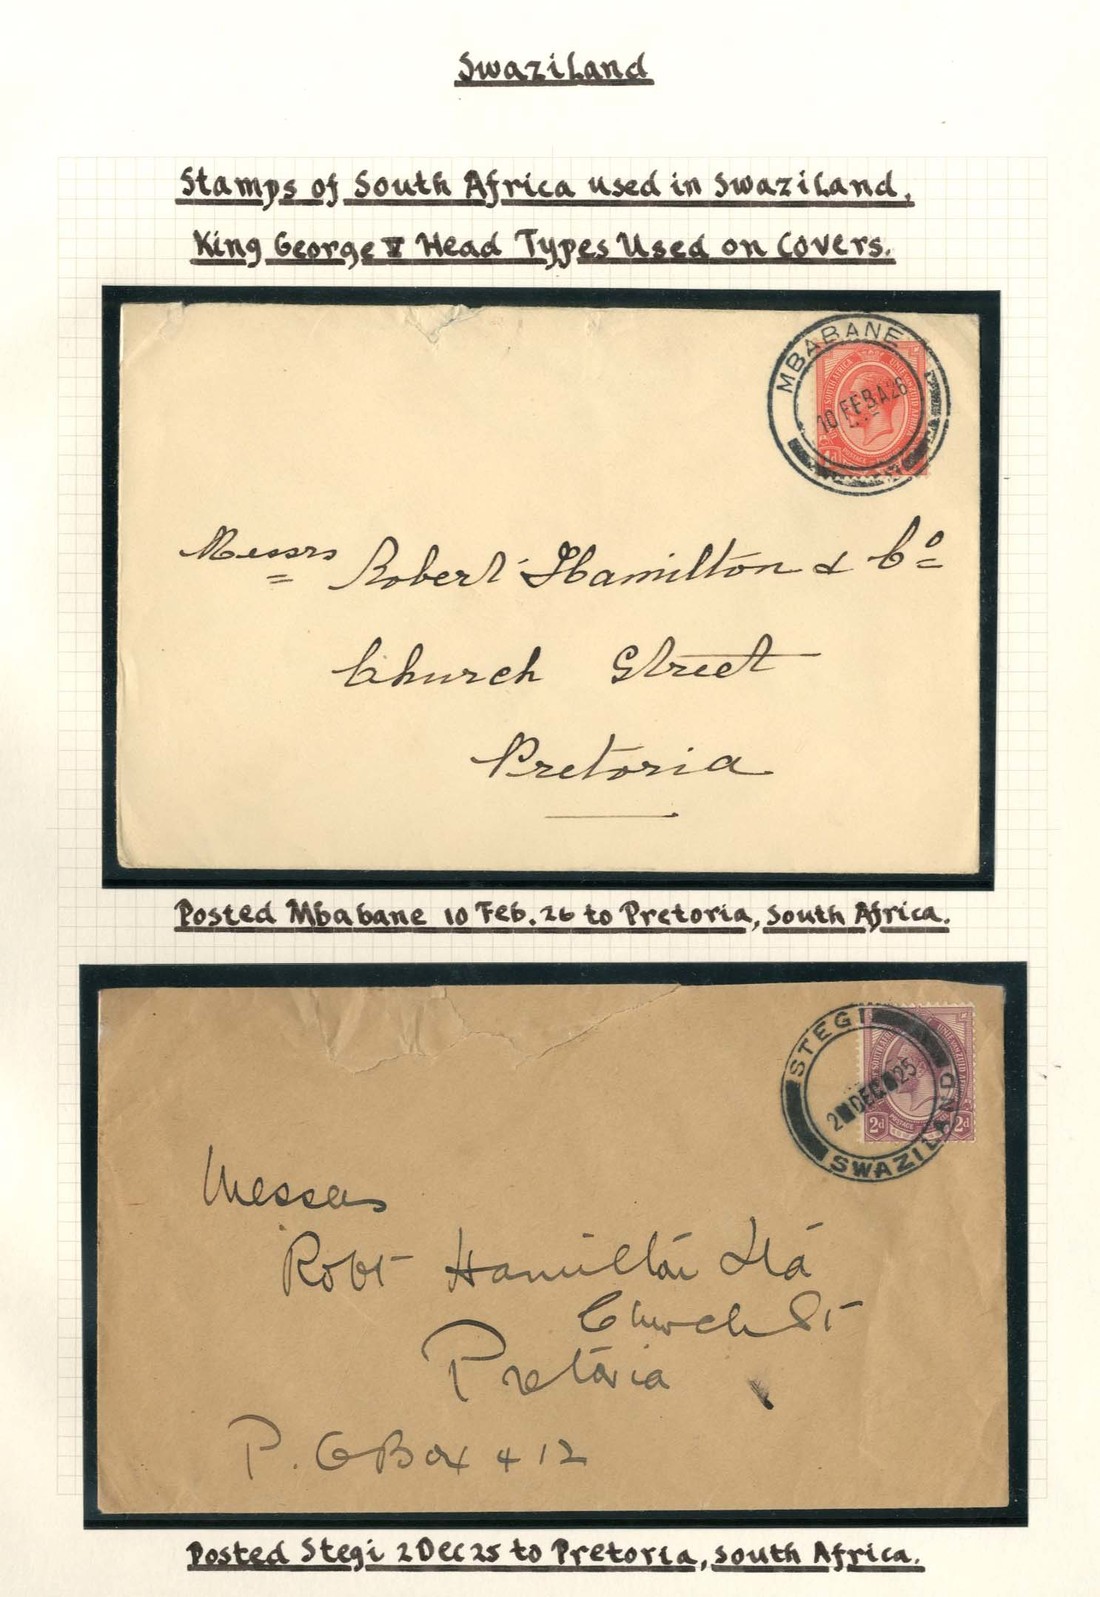 Swaziland
Stamps of South Africa used in Swaziland.
King George V Head Types Used on Covers.
MBABANE
10 FEB A 26
SOUTH AFRICA
UNIE VAN ZUID AFRIKA
Messrs Robert Hamilton & Co
Church Street
Pretoria
Posted Mbabane 10 Feb. 26 to Pretoria, South Africa.
STEGI
2 DEC 25
SWAZILAND
2d 2d
Messrs
Robt Hamilton Ltd
Church St
Pretoria
P.O Box 412
Posted Stegi 2 Dec 25 to Pretoria, South Africa.